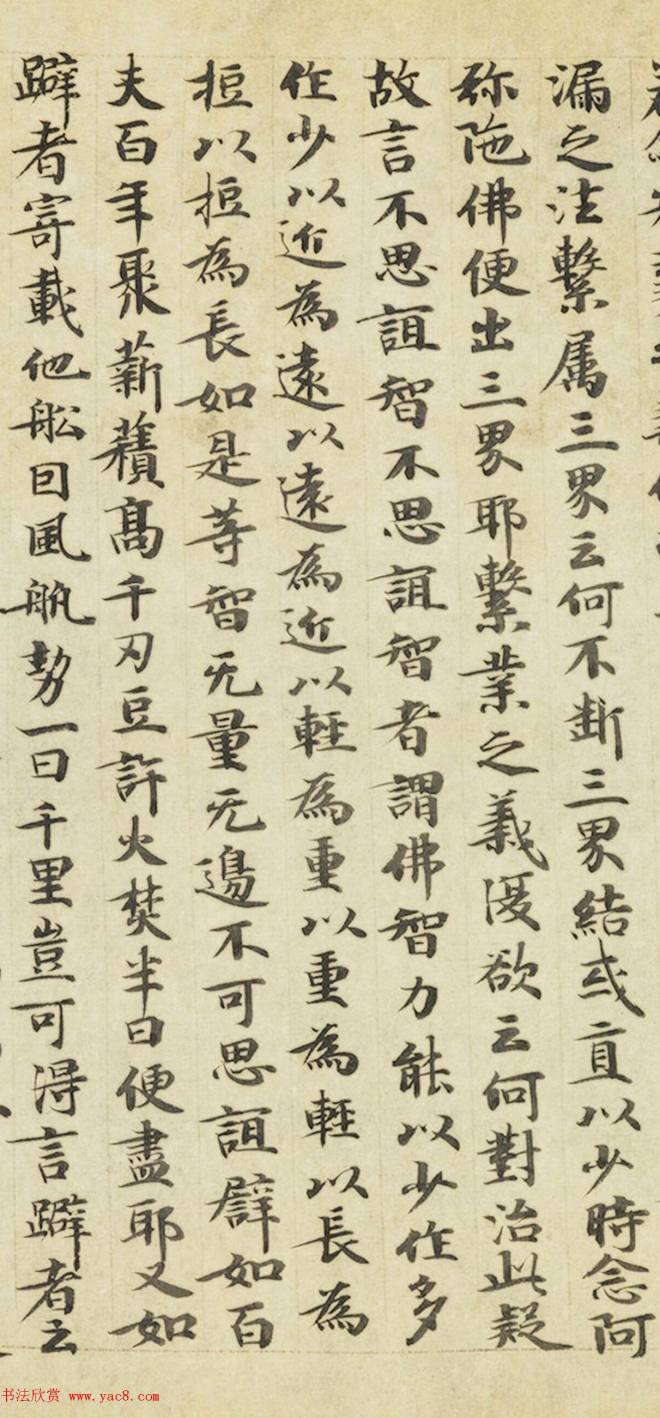 漏之法繫属三界云何不断三界結或直以少時念阿
弥陁佛便出三界耶繫業之義復欲云何對治此疑
故言不思誼智不思誼智者謂佛智力能以少作多
作少以近為遠以遠為近以輕為重以重為輕以長為
短以短為長如是等智无量无邊不可思誼譬如百
夫百年聚薪積高千刃豆許火焚半日便盡耶又如
躃者寄載他舩因風帆勢一日千里豈可得言躃者云
书法欣赏 www.yac8.com